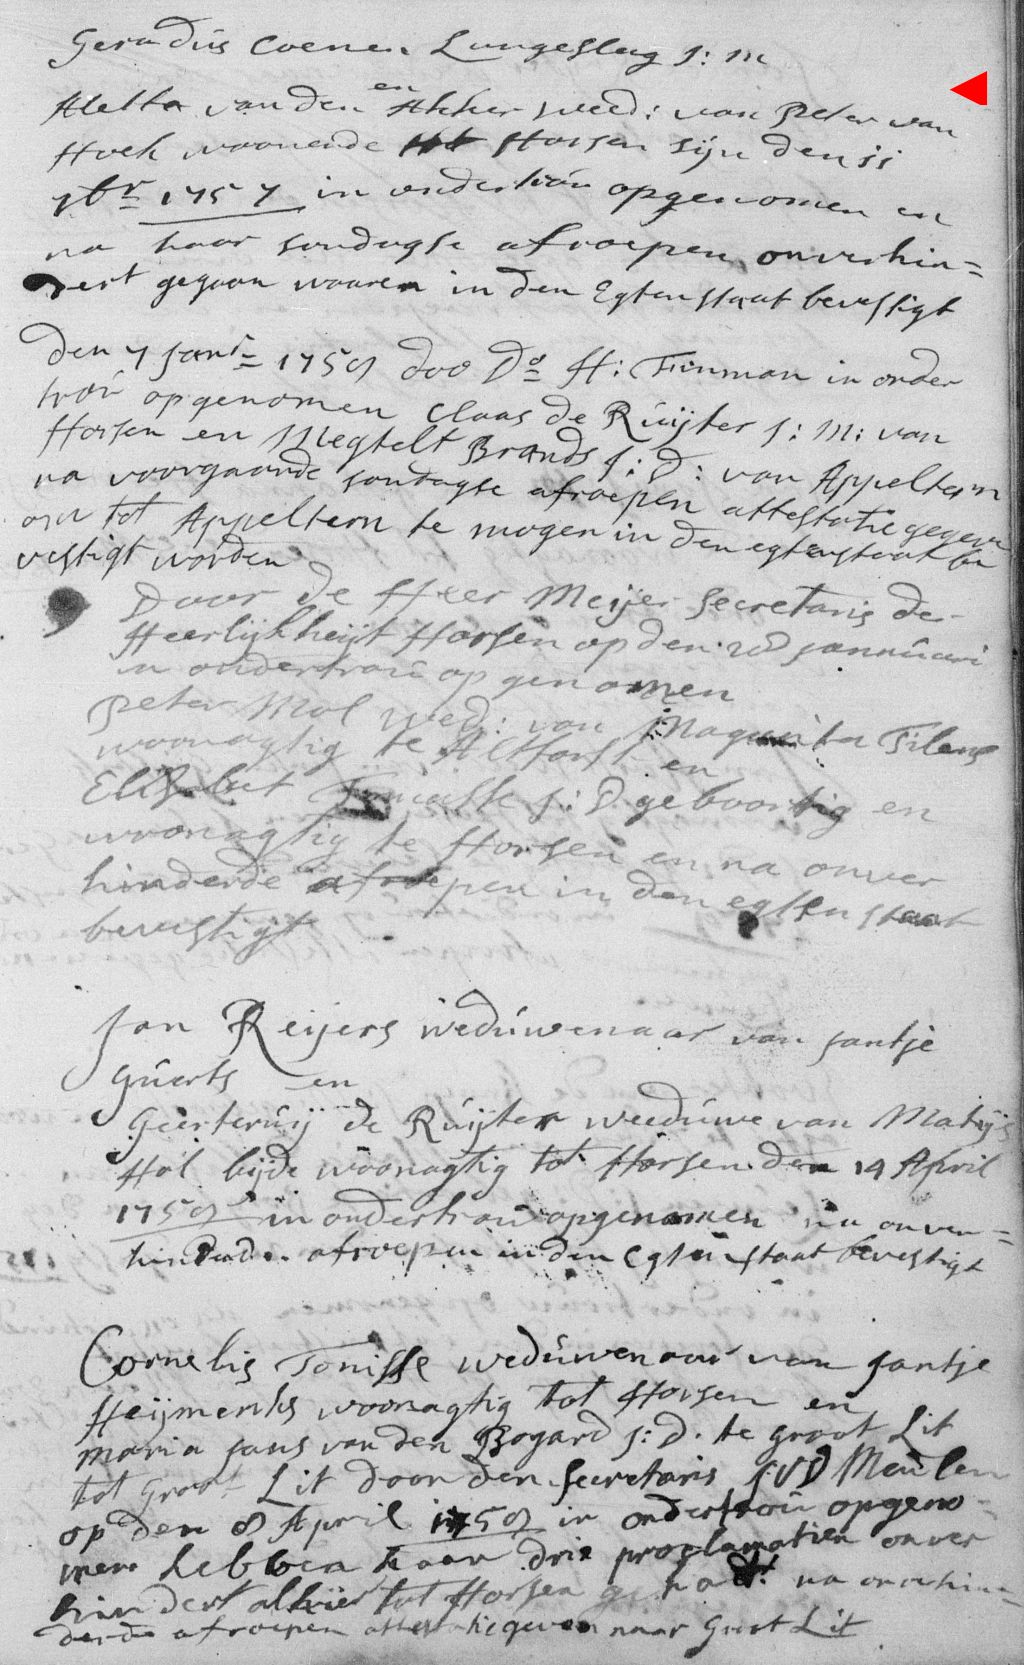 Geradus Coenen Lungeslag J: M
en
Aletta van den Akker Wed: van Peter van
Hoek woonende Horssen sijn den 11
7br 1757 in ondertrou opgenomen en
na haar sondagse afroepen onverhin=
dert gegaan waaren in den Egten staat bevestigt
Den 7 Janr 1759 doo Do H: Tinman in onder
trou opgenomen Claas de Ruijter J: M: van
Horsen en Megtelt Brands J: D: van Appeltern
na voorgaande sondagse afroepen attestatie gegeven
om tot Appeltern te mogen in den egtenstaat be
vestigt worden
Door de Heer Meijer Secretaris der
Heerlijkheijt Horsen op den 28 Januari
in ondertrou opgenomen
Peter Mol Wed: van Tilens
woonagtig te Altforst en
Elisabet J: D geboortig en
woonagtig te Horsen en na onver
hinderde afroepen in den egten staat
bevestigt
Jan Reijers weduwenaar van Jantje
Guerts en
Geerteruij de Ruijter weeduwe van Matijs
Hol bijde woonagtig tot Horsen den 14 April
1759 in ondertrou opgenomen na onver=
hinderde afroepen in den Egten staat bevestigt
Cornelis Tonisse weduwenaar van Jantje
Heijmenks woonagtig tot Horsen en
Maria Jans van den Bogard J: D. te Groot Lit
tot Groot Lit door den Secretaris J: V D Meulen
op den 8 April 1759 in ondertrou opgeno
men hebben haar drie proclamatien onver
hindert alhier tot Horsen gehadt na onverhin=
derde afroepen attestatie geven naar Groot Lit